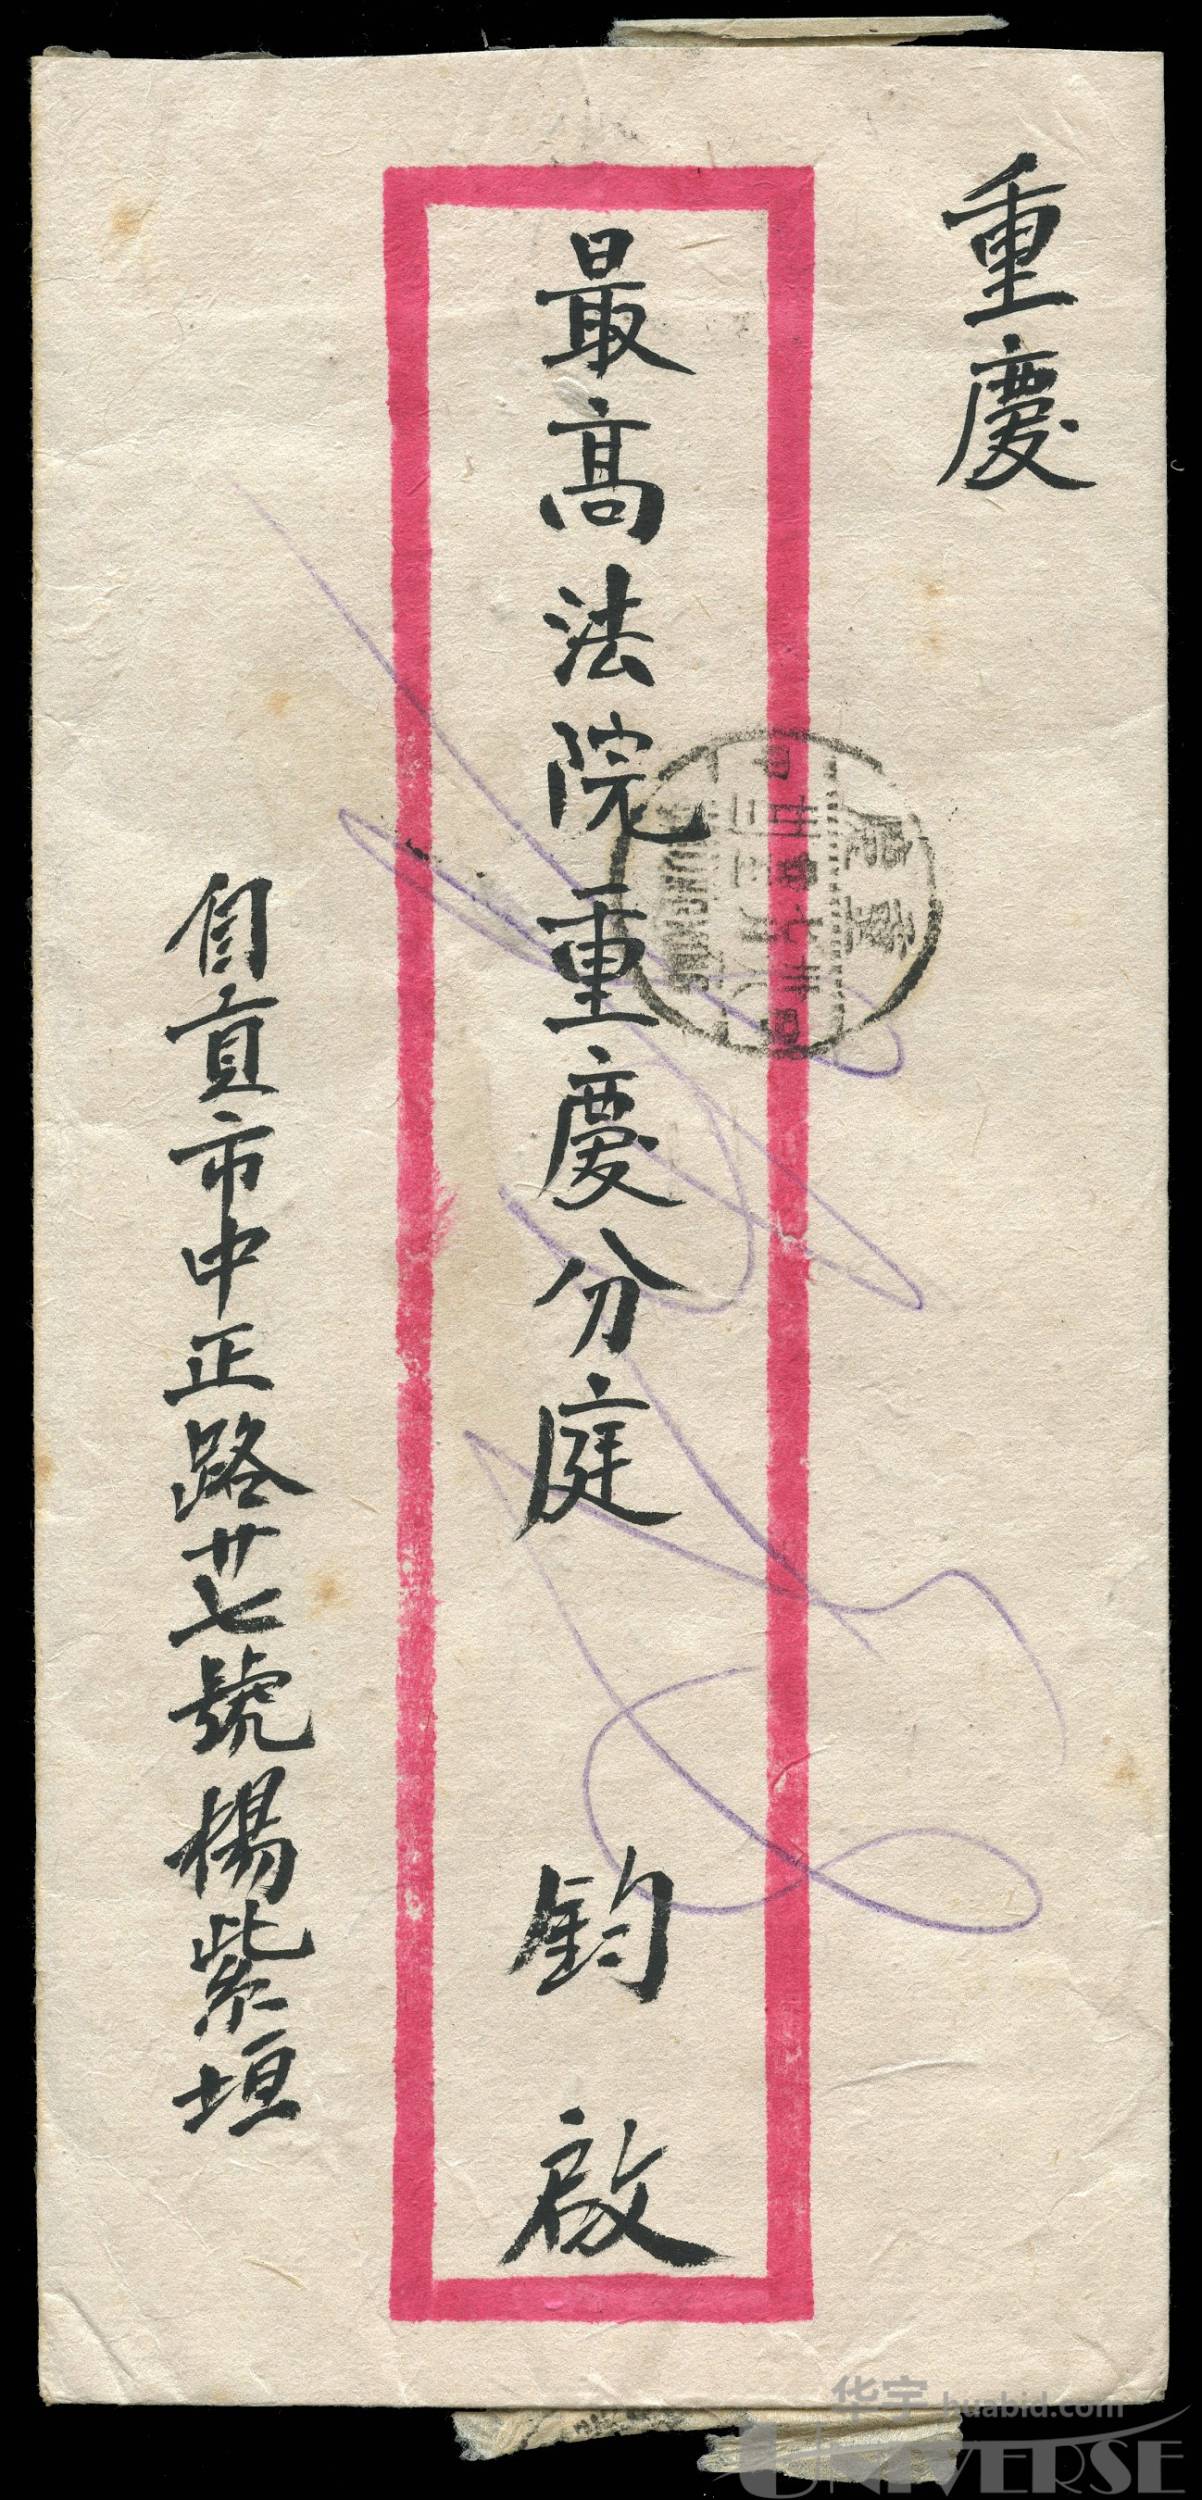 重慶
最高法院重慶分庭 鈞啟
自貢市中正路廿七號楊紫垣
重慶
CHUNGKING
华宇 huabid.com
UNIVERSE